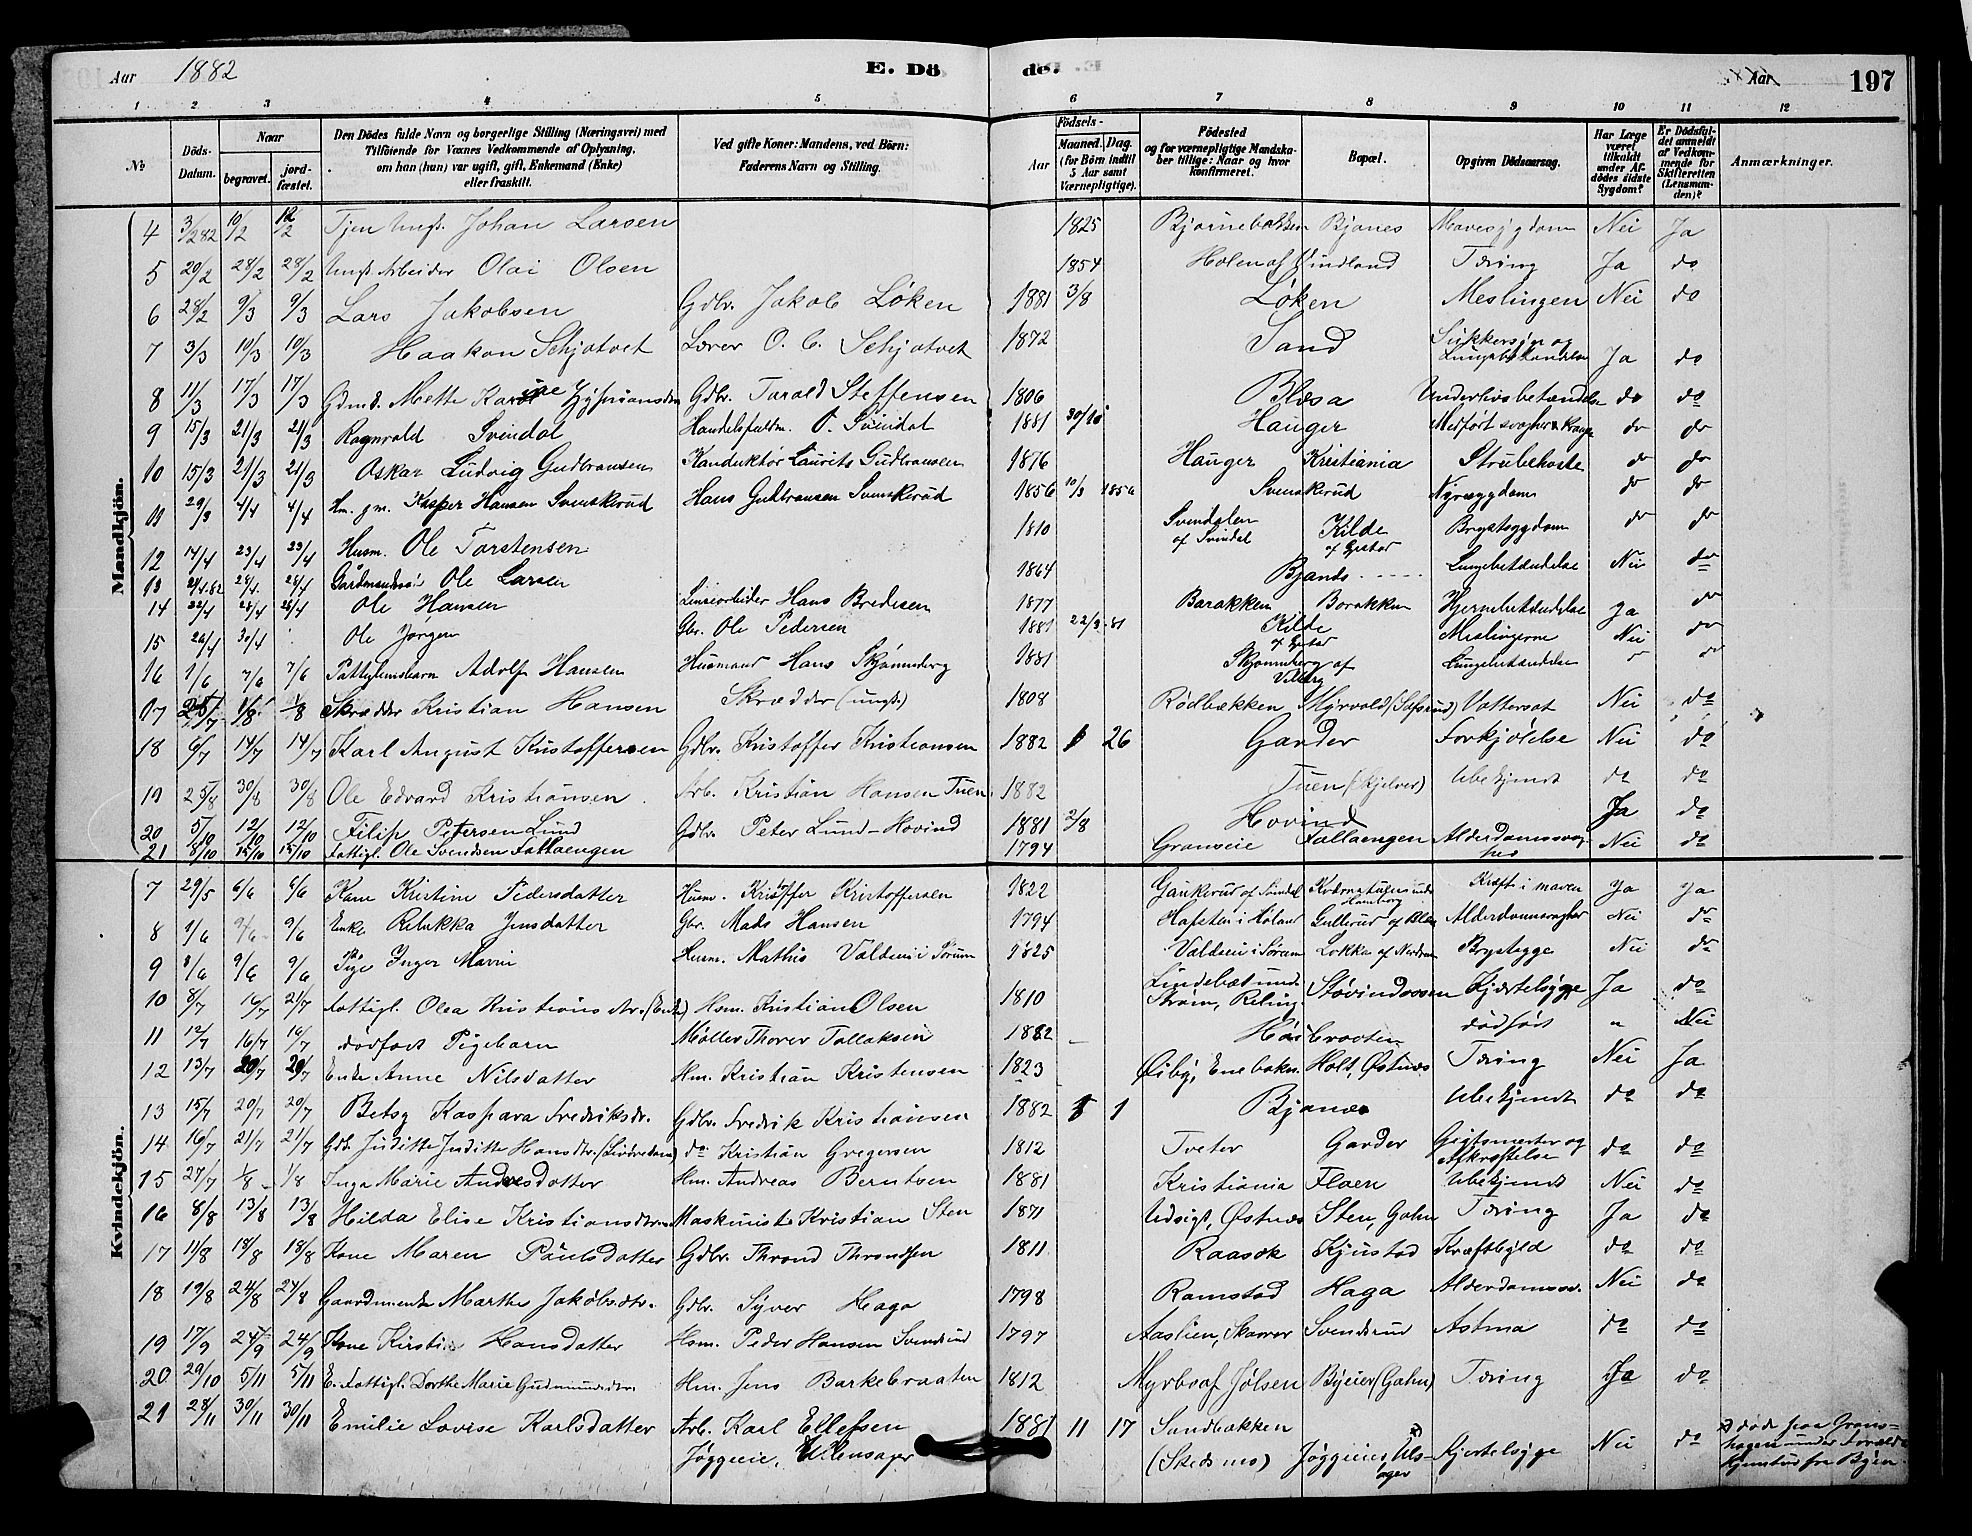 Aar 1882 E. Dö de. Aar 197
1 2 3 4 5 6 7 8 9 10 11 12
No
Döds-Datum.
Naar
begravet.
jord-fæstet.
Den Dödes fulde Navn og borgerlige Stilling (Næringsvei) med Tilföiende for Voxnes Vedkommende af Oplysning, om han (hun) var ugift, gift, Enkemand (Enke) eller fraskilt.
Ved gifte Koner: Mandens, ved Börn: Faderens Navn og Stilling.
Födsels-
Aar
Maaned. Dag.
(for Börn indtil 5 Aar samt Værnepligtige).
Födested og for værnepligtige Mandskaber tillige: Naar og hvor konfirmeret.
Bopæl.
Opgiven Dödsaarsag.
Har Læge været tilkaldt under Afdödes sidste Sygdom?
Er Dödsfaldet anmeldt af Vedkommende for Skifteretten (Lensmanden)?
Anmærkninger.
Mandkjön.
4 3/2 82 10/2 12/2 Tjen Ungk. Johan Larsen 1825 Bjørnebakken Bjones Mavesygdom Nei Ja
5 20/2 28/2 28/2 Ungk. Arbeider Olai Olsen 1854 Holen af Vindland Tæring Ja do
6 28/2 9/3 9/3 Lars Jakobsen Gdbr. Jakob Løken 1881 3/8 Løken Meslingen Nei do
7 3/3 10/3 10/3 Haakon Schjatvet Lærer O. C. Schjatvet 1872 Sand Sukkersyge og Lungebetændelse Ja do
8 11/3 17/3 17/3 Gdmd. Mette Karine Gdbr. Tarald Steffensen 1806 Blæsa Underlivsbetændelse do do
9 15/3 21/3 21/3 Ragnvald Svindal Handelsfuldm. O. Svindal 1881 30/10 Hauger Medfødt svaghed do do
10 15/3 21/3 21/3 Oskar Ludvig Gudbransen Konduktør Laurits Gudbransen 1876 Hauger Kristiania Strubehoste do do
11 29/3 4/4 4/4 Hm. gm. Kasper Hansen Svenskerud Hans Gulbransen Svenskerud 1856 10/3 1856 Svenskerud Nyresygdom do do
12 14/4 23/4 23/4 Husm. Ole Torstensen 1810 Svendalen af Svindal Kilde Brystsygdom do do
13 21/4 82 28/4 28/4 Gårdmandssøn Ole Larsen 1864 Bjanes Lungebetændelse Nei do
14 22/4 28/4 28/4 Ole Hansen Liniearbeider Hans Bredesen 1877 Barakken Barakken Hjernebetændelse Ja do
15 20/4 30/4 Ole Jørgen Gbr. Ole Pedersen 1881 22/3 81 Kilde Meslingerne Nei do
16 1/6 7/6 7/6 Fattiglemsbarn Adolf Hansen Husmand Hans Skjønneberg 1881 Skjønneberg af Lungebetændelse
17 25/7 1/8 1/8 Skrædder Kristian Hansen Skrædder (ungk.) 1808 Rødbækken Vattersot Nei do
18 6/7 14/7 14/7 Karl August Kristoffersen Gdbr. Kristoffer Kristiansen 1882 1 26 Garder Forkjølelse Nei do
19 25/8 30/8 30/8 Ole Edvard Kristiansen Arb. Kristian Hansen Tuen 1882 Tuen (Kjelver) Ubekjendt do do
20 5/10 12/10 12/10 Filip Petersen Lund Gdbr. Peter Lund-Hovind 1881 2/8 Hovind Ja do
21 8/10 15/10 15/10 Fattigl. Ole Svendsen Fallaengen 1794 Granseie Fallaengen Alderdomssvaghed Nei do
Kvindekjön.
7 29/5 6/6 6/6 Kone Kristine Pedersdatter Husm. Kristoffer Kristoffersen 1822 Gaukerud af Svindal Kræft i maven Ja Ja
8 1/6 9/6 9/6 Enke Rebekka Jensdatter Gbr. Mads Hansen 1794 Hafsten i Høland Gullerud af Blæsa Alderdomssvaghed Nei do
9 4/6 9/6 9/6 Pige Inger Marie Husm. Mathis Valdmeie Sørum 1825 Valdeneie i Sørum Lokken af Nordrum Brystsyge Nei do
10 8/7 16/7 21/7 Fattigl. Olea Kristians dtr. (Enke) Hsm. Kristian Olsen 1810 Lundebæt und. Strøm, Reling Støvindvossen Kjertelsyge Ja do
11 12/7 16/7 16/7 dødfødt Pigebarn Møller Thorer Tollaksen 1882 Høibraaten dødfødt " Nei
12 13/7 20/7 20/7 Enke Anne Nilsdatter Hm. Kristian Kristensen 1823 Øiby, Enebakn. Holt, Østnæs Tæring Nei Ja
13 15/7 20/7 20/7 Betsy Kaspara Fredriksdr. Gdbr. Fredrik Kristiansen 1882 1 Bjanes Ubekjendt do do
14 16/7 21/7 21/7 Gdb. Juditte Juditte Hansdtr. do Kristian Gregersen 1812 Tveter Garder Gigtsmerter og Afkræftelse do do
15 27/7 1/8 1/8 Inga Marie Andersdatter Hm. Andreas Berntsen 1881 Kristiania Flaen Ubekjendt Nei do
16 8/8 13/8 13/8 Hilda Elise Kristiansdtr. Maskinist Kristian Sten 1871 Udsigt, Østnæs Sten, Gahn Tæring Ja do
17 11/8 18/8 18/8 Kone Maren Paulsdatter Gdbr. Thrond Throndsen 1811 Raasok Kjustad Kræftbyld do do
18 19/8 24/8 24/8 Gaardmenke Marthe Jakobsdtr. Gdbr. Syver Haga 1798 Ramstad Haga Alderdomssv. Nei do
19 17/9 24/9 24/9 Kone Kirstine Hansdatter Hsm. Peder Hansen Svendsrud 1797 Aaslien, Skarrer Svendsrud Astma do do
20 29/10 5/11 5/11 E. Fattigl. Dorthe Marie Gudmundsdtr. Hm. Jens Barkebraaten 1812 Myrbr af Jølsen Byeier (Gahn) Tæring Ja do
21 28/11 30/11 30/11 Emilie Lovise Karlsdatter Arb. Karl Ellefsen 1881 11 17 Sandbakken Nei do
Jøggeie, Ulensager (Skedsmo) Jøggeie, Ulensager Kjertelsyge
døde paa Grønshagen under